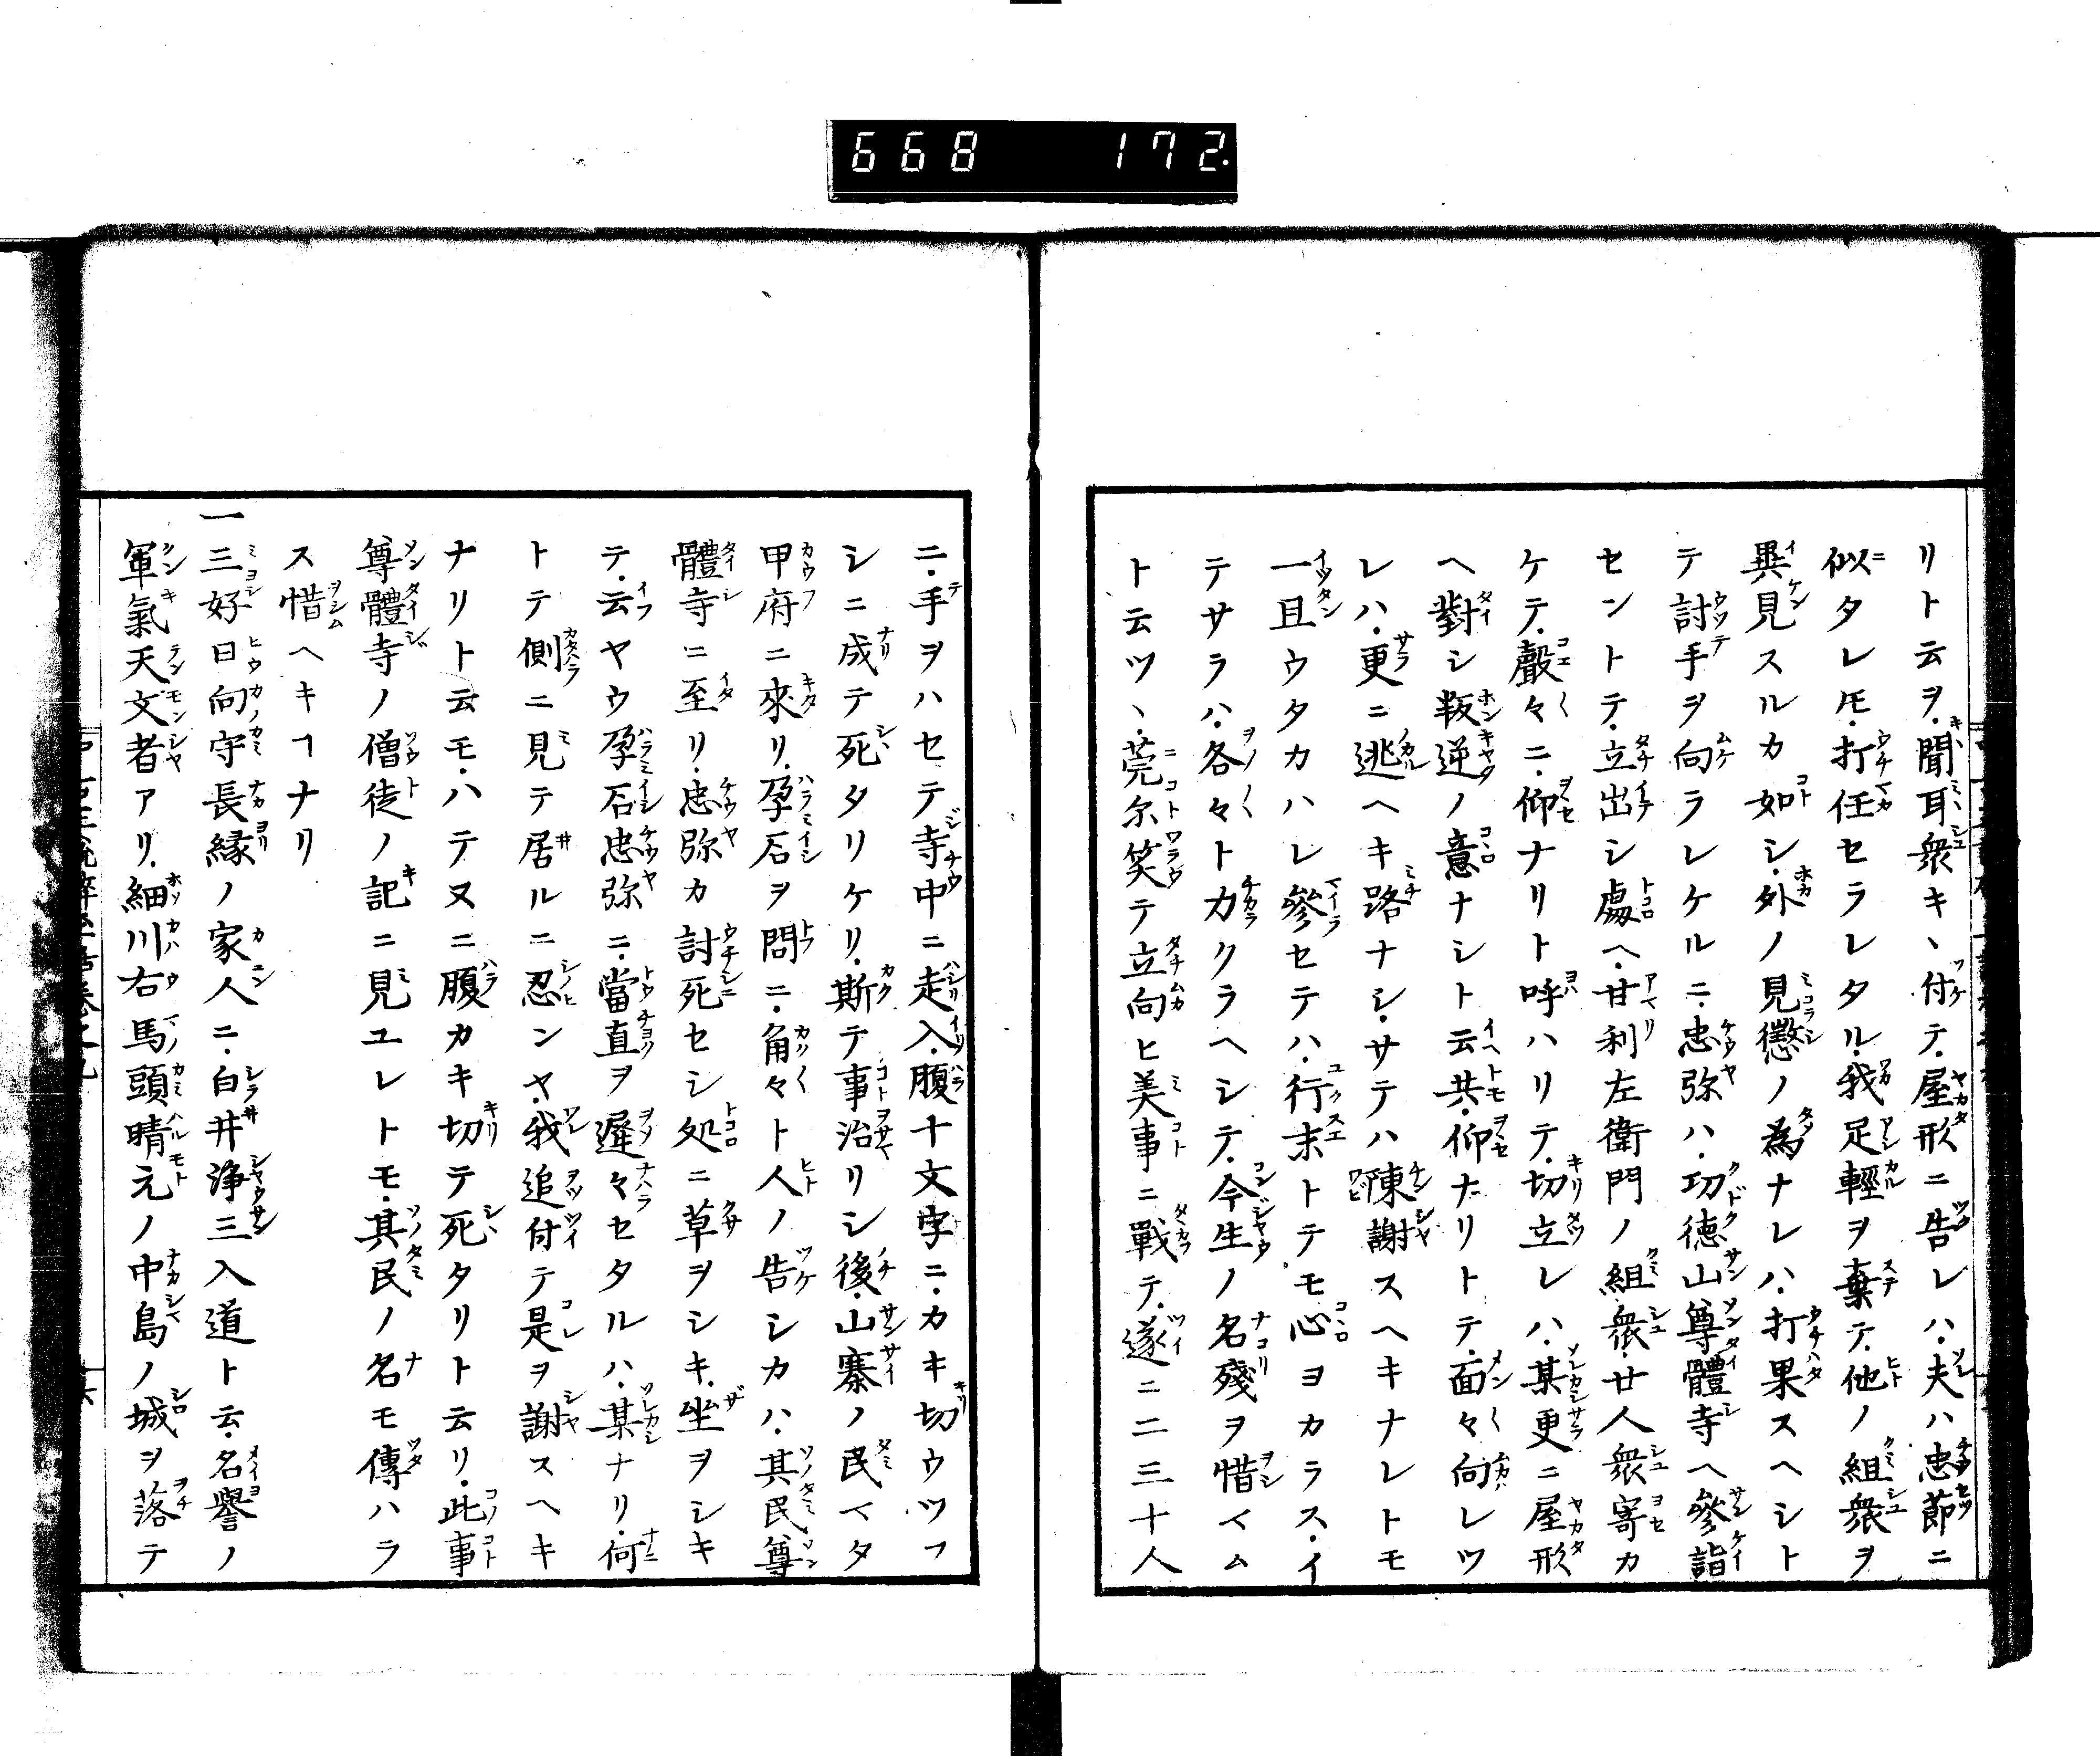 668 172
リト云ヲ聞耳衆キヽ付テ屋形ニ告レハ夫ハ忠節ニ
似タレ𪜈打任セラレタル我足輕ヲ棄テ他ノ組衆ヲ
異見スルカ如シ外ノ見懲ノ為ナレハ打果スヘシト
テ討手ヲ向ラレケルニ忠弥ハ功徳山尊體寺ヘ參詣
セントテ立出シ處ヘ甘利左衛門ノ組衆廿人衆寄カ
ケテ聲々ニ仰ナリト呼ハリテ切立レハ某更ニ屋形
ヘ對シ叛逆ノ意ナシト云共仰ナリトテ面々向レツ
レハ更ニ逃ヘキ路ナシサテハ陳謝スヘキナレトモ
一且ウタカハレ參セテハ行末トテモ心ヨカラスイ
テサラハ各々ト力クラヘシテ今生ノ名殘ヲ惜マム
ト云ツヽ莞尓笑テ立向ヒ美事ニ戰テ遂ニ二三十人
ニ手ヲハセテ寺中ニ走入腹十文字ニカキ切ウツフ
シニ成テ死タリケリ斯テ事治リシ後山寨ノ民マタ
甲府ニ來リ孕石ヲ問ニ角々ト人ノ告シカハ其民尊
體寺ニ至リ忠弥カ討死セシ処ニ草ヲシキ坐ヲシキ
テ云ヤウ孕石忠弥ニ當直ヲ遲々セタルハ某ナリ何
トテ側ニ見テ居ルニ忍ンヤ我追付テ是ヲ謝スヘキ
ナリト云モハテヌニ腹カキ切テ死タリト云リ此事
尊體寺ノ僧徒ノ記ニ見ユレトモ其民ノ名モ傳ハラ
ス惜ヘキヿナリ
一三好日向守長縁ノ家人ニ白井浄三入道ト云名譽ノ
軍氣天文者アリ細川右馬頭晴元ノ中島ノ城ヲ落テ